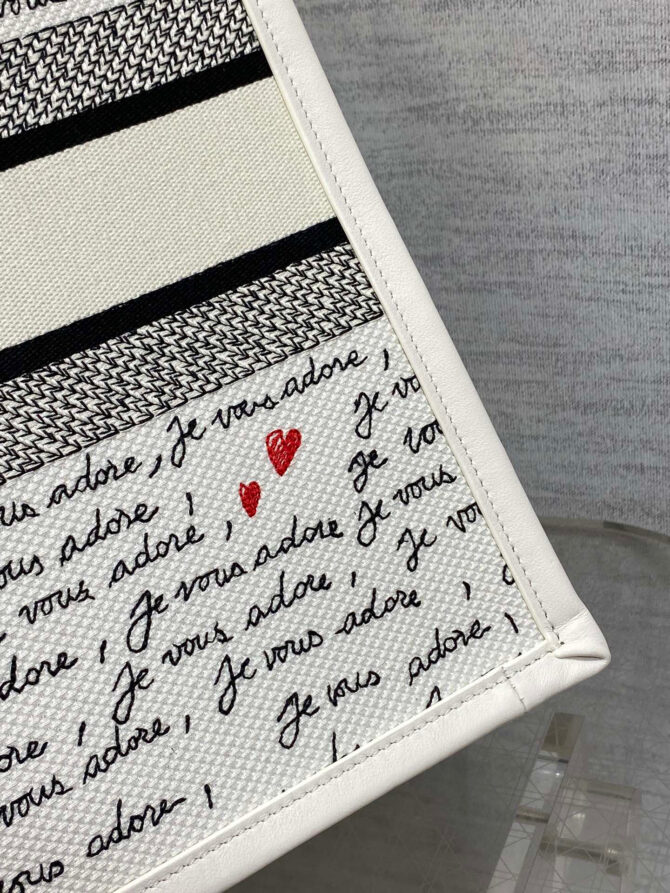 us adore, Je vous adore,
ous adore, Je vo
vous adore, Je vou
dore, Je vous adore Je vous
ore, Je vous adore, Je vou
vous adore, Je vous adore,
vous adore, Je vous adore,